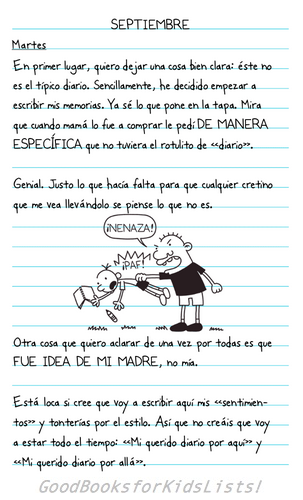 SEPTIEMBRE
Martes
En primer lugar, quiero dejar una cosa bien clara: éste no
es el típico diario. Sencillamente, he decidido empezar a
escribir mis memorias. Ya sé lo que pone en la tapa. Mira
que cuando mamá lo fue a comprar le pedí DE MANERA
ESPECÍFICA que no tuviera el rotulito de «diario».
Genial. Justo lo que hacía falta para que cualquier cretino
que me vea llevándolo se piense lo que no es.
¡NENAZA!
¡PAF!
Otra cosa que quiero aclarar de una vez por todas es que
FUE IDEA DE MI MADRE, no mía.
Está loca si cree que voy a escribir aquí mis «sentimien-
tos» y tonterías por el estilo. Así que no creáis que voy
a estar todo el tiempo: «Mi querido diario por aquí» y
«Mi querido diario por allá».
GoodBooksforKidsLists!